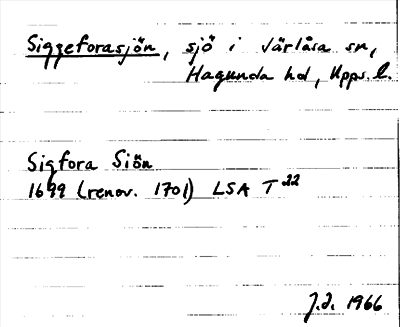 Siggeforasjön, sjö i Järlåsa sn,
Hagunda hd, Upps. l.
Sigfora Siön
1699 (renov. 1701) LSA T 22
J.J. 1966